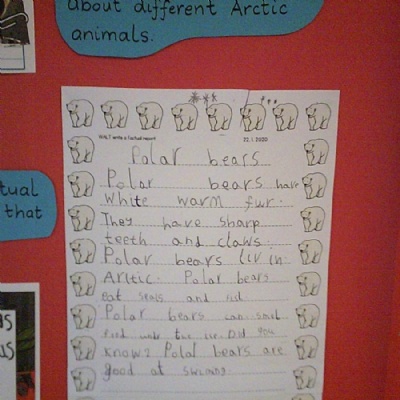 about different Arctic
animals.
tual
that
WALT write a factual report
22.1.2020
Polar bears
Polar bears have
white warm fur.
They have sharp
teeth and claws.
Polar bears liv in
Arctic. Polar bears
eat seals and
Polar bears can smell
food under the ice. Did you
know? Polal bears are
good at swiming.